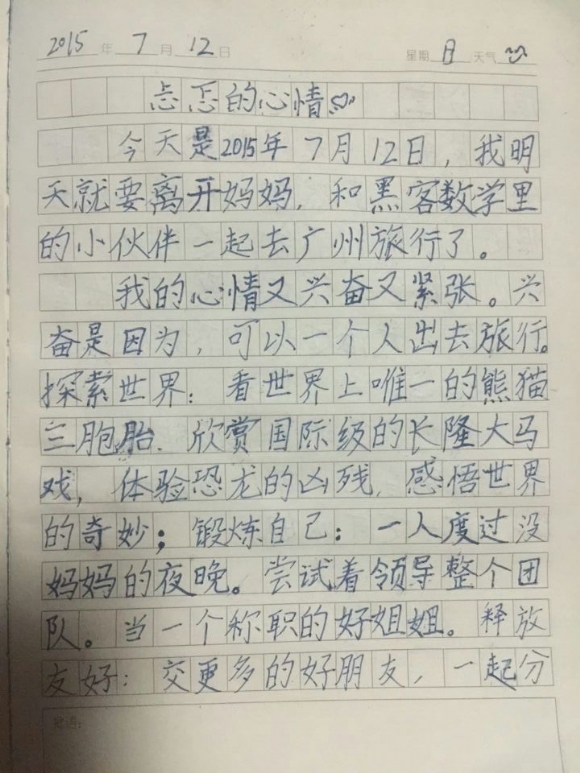 2015 年 7 月 12 日 星期 日 天气
忐忑的心情
今天是2015年7月12日，我明
天就要离开妈妈，和黑客数学里
的小伙伴一起去广州旅行了。
我的心情又兴奋又紧张。兴
奋是因为，可以一个人出去旅行。
探索世界：看世界上唯一的熊猫
三胞胎．欣赏国际级的长隆大马
戏，体验恐龙的凶残，感悟世界
的奇妙；锻炼自己：一人度过没
妈妈的夜晚。尝试着领导整个团
队。当一个称职的好姐姐。释放
友好：交更多的好朋友，一起分
批语：